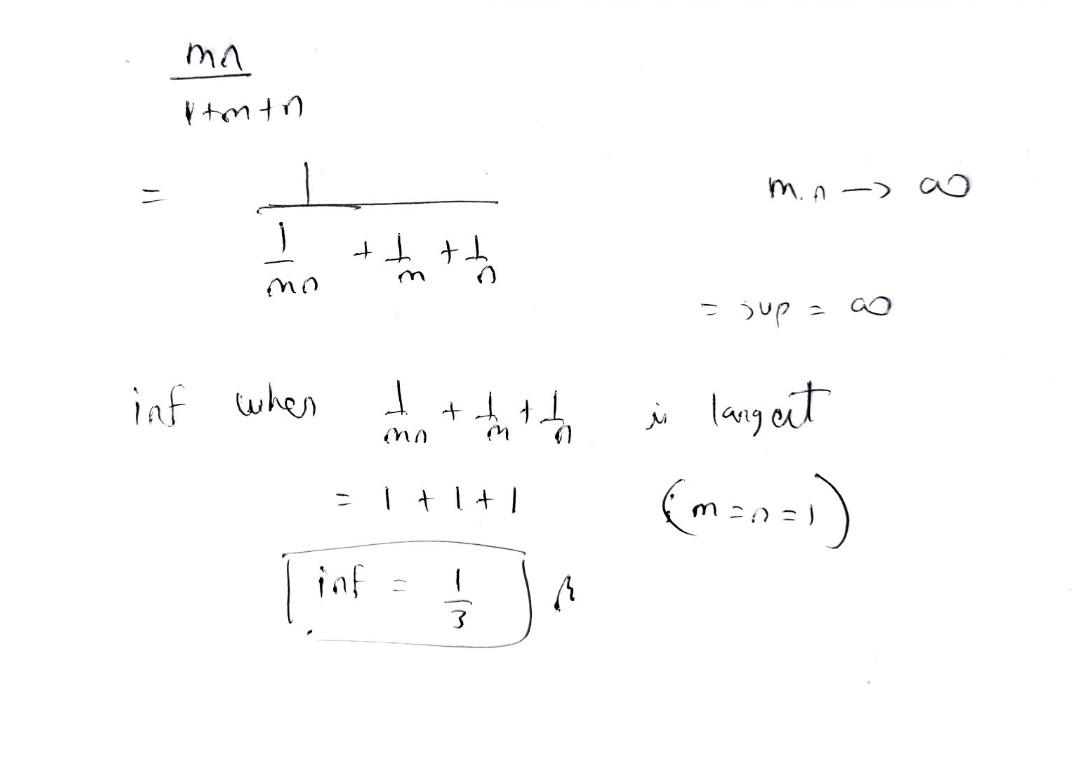 mn
1+m+n
= 1
1/mn + 1/m + 1/n
m.n → ∞
= sup = ∞
inf when 1/mn + 1/m + 1/n is largest
= 1 + 1 + 1 (m=n=1)
inf = 1/3